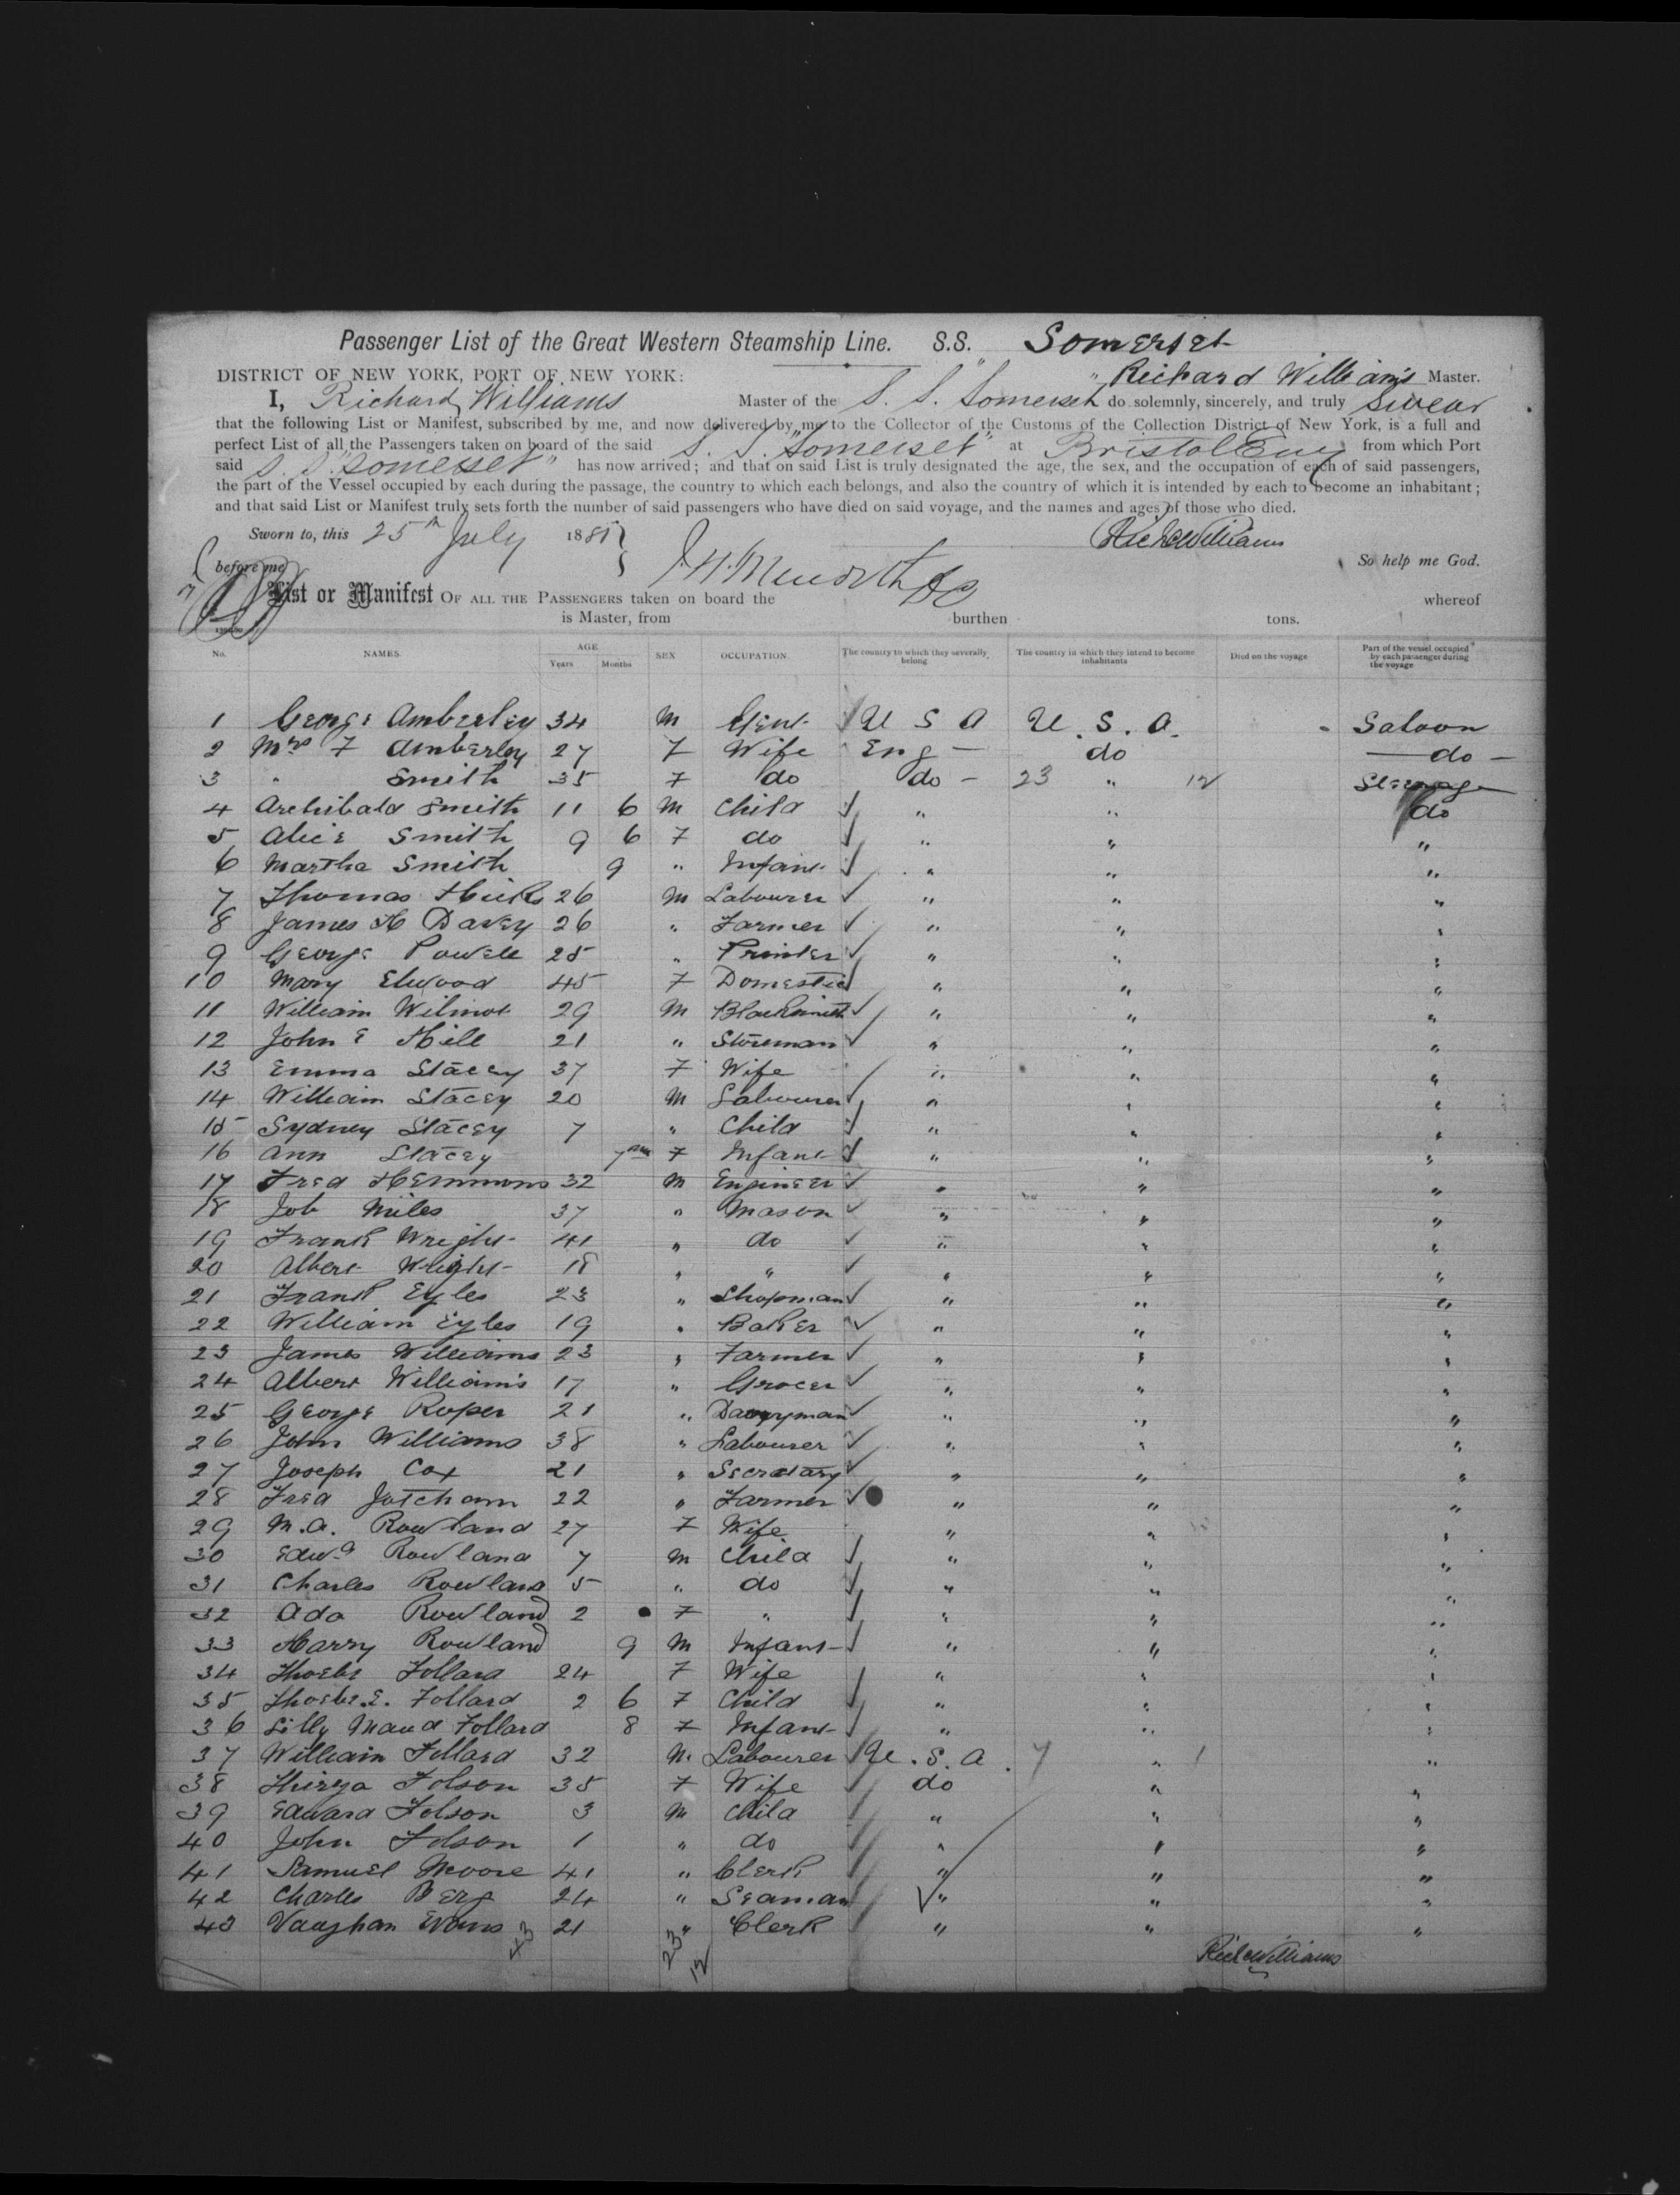 Passenger List of the Great Western Steamship Line. S.S. Somerset
DISTRICT OF NEW YORK, PORT OF NEW YORK: " " Richard Williams Master.
I, Richard Williams Master of the S. S. Somerset do solemnly, sincerely, and truly swear
that the following List or Manifest, subscribed by me, and now delivered by me to the Collector of the Customs of the Collection District of New York, is a full and
perfect List of all the Passengers taken on board of the said S. S. "Somerset" at Bristol Eng from which Port
said S. S. "Somerset" has now arrived; and that on said List is truly designated the age, the sex, and the occupation of each of said passengers,
the part of the Vessel occupied by each during the passage, the country to which each belongs, and also the country of which it is intended by each to become an inhabitant;
and that said List or Manifest truly sets forth the number of said passengers who have died on said voyage, and the names and ages of those who died.
Sworn to, this 25th July 1881 Richd Williams
before me So help me God.
List or Manifest OF ALL THE PASSENGERS taken on board the whereof
is Master, from burthen tons.
No. NAMES. AGE Years Months SEX OCCUPATION. The country to which they severally belong The country in which they intend to become inhabitants Died on the voyage Part of the vessel occupied by each passenger during the voyage
1 George Amberley 34 M Gent U S A U. S. A. Saloon
2 Mrs F Amberley 27 F Wife Eng - do do -
3 " Smith 35 F do do - 23 " 12 Steerage
4 Archibald Smith 11 6 M Child " " do
5 Alice Smith 9 6 F do " " "
6 Martha Smith 9 " Infant " " "
7 Thomas Hicks 26 M Labourer " " "
8 James H Davey 26 " Farmer " " "
9 George Powell 25 " Printer " " "
10 Mary Elwood 45 F Domestic " " "
11 William Wilmot 29 M Blacksmith " " "
12 John E Hill 21 " Storeman " " "
13 Emma Stacey 37 F Wife " " "
14 William Stacey 20 M Labourer " " "
15 Sydney Stacey 7 " Child " " "
16 Ann Stacey 7 F Infant " " "
17 Fred Hemmons 32 M Engineer " " "
18 Job Miles 37 " Mason " " "
19 Frank Wright 41 " do " " "
20 Albert Wright 18 " " " " "
21 Frank Eyles 23 " Shopman " " "
22 William Eyles 19 " Baker " " "
23 James Williams 23 " Farmer " " "
24 Albert Williams 17 " Grocer " " "
25 George Roper 21 " Dairyman " " "
26 John Williams 38 " Labourer " " "
27 Joseph Cox 21 " Secretary " " "
28 Fred Jotcham 22 " Farmer " " "
29 M.A. Rowland 27 F Wife " " "
30 Edwd Rowland 7 M Child " " "
31 Charles Rowland 5 " do " " "
32 Ada Rowland 2 F " " " "
33 Harry Rowland 9 M Infant " " "
34 Phoebe Follard 24 F Wife " " "
35 Phoebe E. Follard 2 6 F Child " " "
36 Lilly Maud Follard 8 F Infant " " "
37 William Follard 32 M. Labourer U. S. A. 7 " 1 "
38 Thirza Folson 35 F Wife do " "
39 Edward Folson 3 M Child " " "
40 John Folson 1 " do " " "
41 Samuel Moore 41 " Clerk " " "
42 Charles Berg 24 " Seaman " " "
43 Vaughan Evans 21 " Clerk " " "
43 23 12 Richd Williams